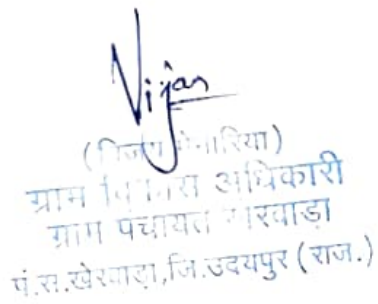 Vijay
(विजय
ग्राम विकास अधिकारी
ग्राम पंचायत
पं.स.खेरवाड़ा,जि.उदयपुर (राज.)